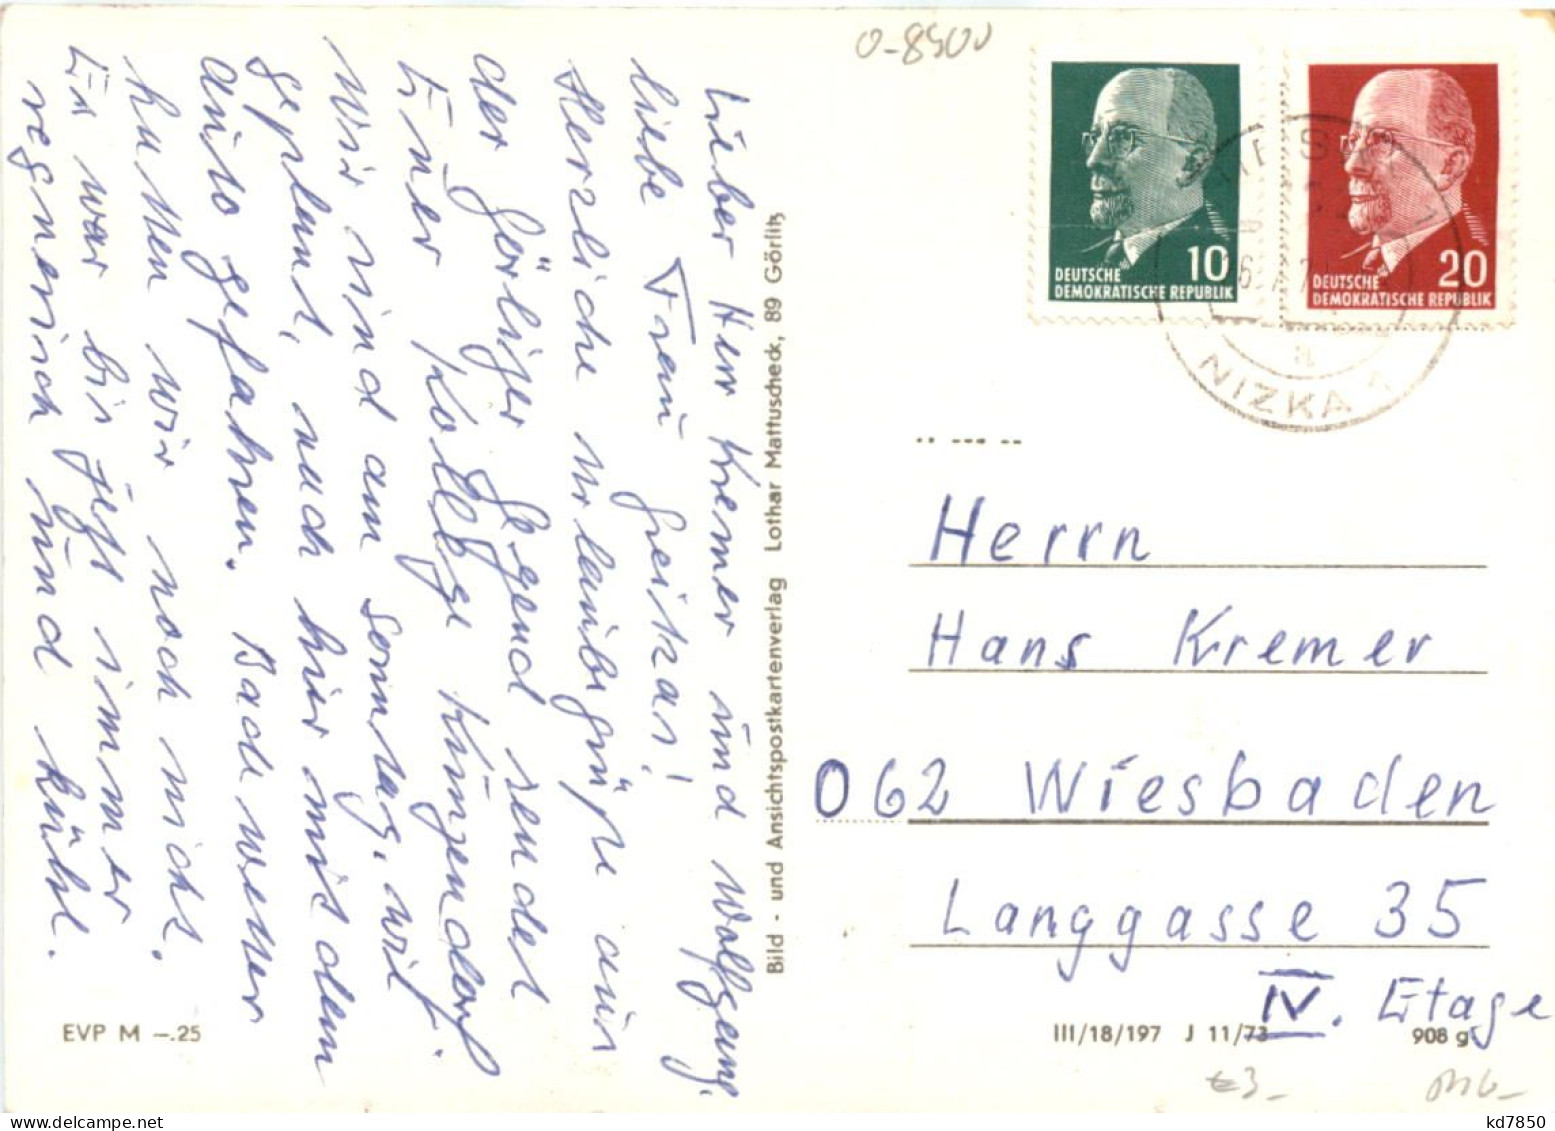 Lieber Herr Kremer und Wolfgang,
liebe Frau
Herzliche Urlaubsgrüße aus
der Görlitzer Gegend sendet
Euer Kollege Kunzendorf.
Wir sind am Sonntag, wie
geplant, nach hier mit dem
Auto gefahren. Badewetter
hatten wir noch nicht.
Es war bis jetzt immer
regnerisch und kühl.
EVP M —.25
Bild - und Ansichtspostkartenverlag Lothar Mattuscheck, 89 Görlitz
0-8900
DEUTSCHE
DEMOKRATISCHE REPUBLIK
10
DEUTSCHE
DEMOKRATISCHE REPUBLIK
20
NIESKY 1
NIZKA 1
a
Herrn
Hans Kremer
062 Wiesbaden
Langgasse 35
IV. Etage
III/18/197 J 11/73
908 g
€3.-
kd7850